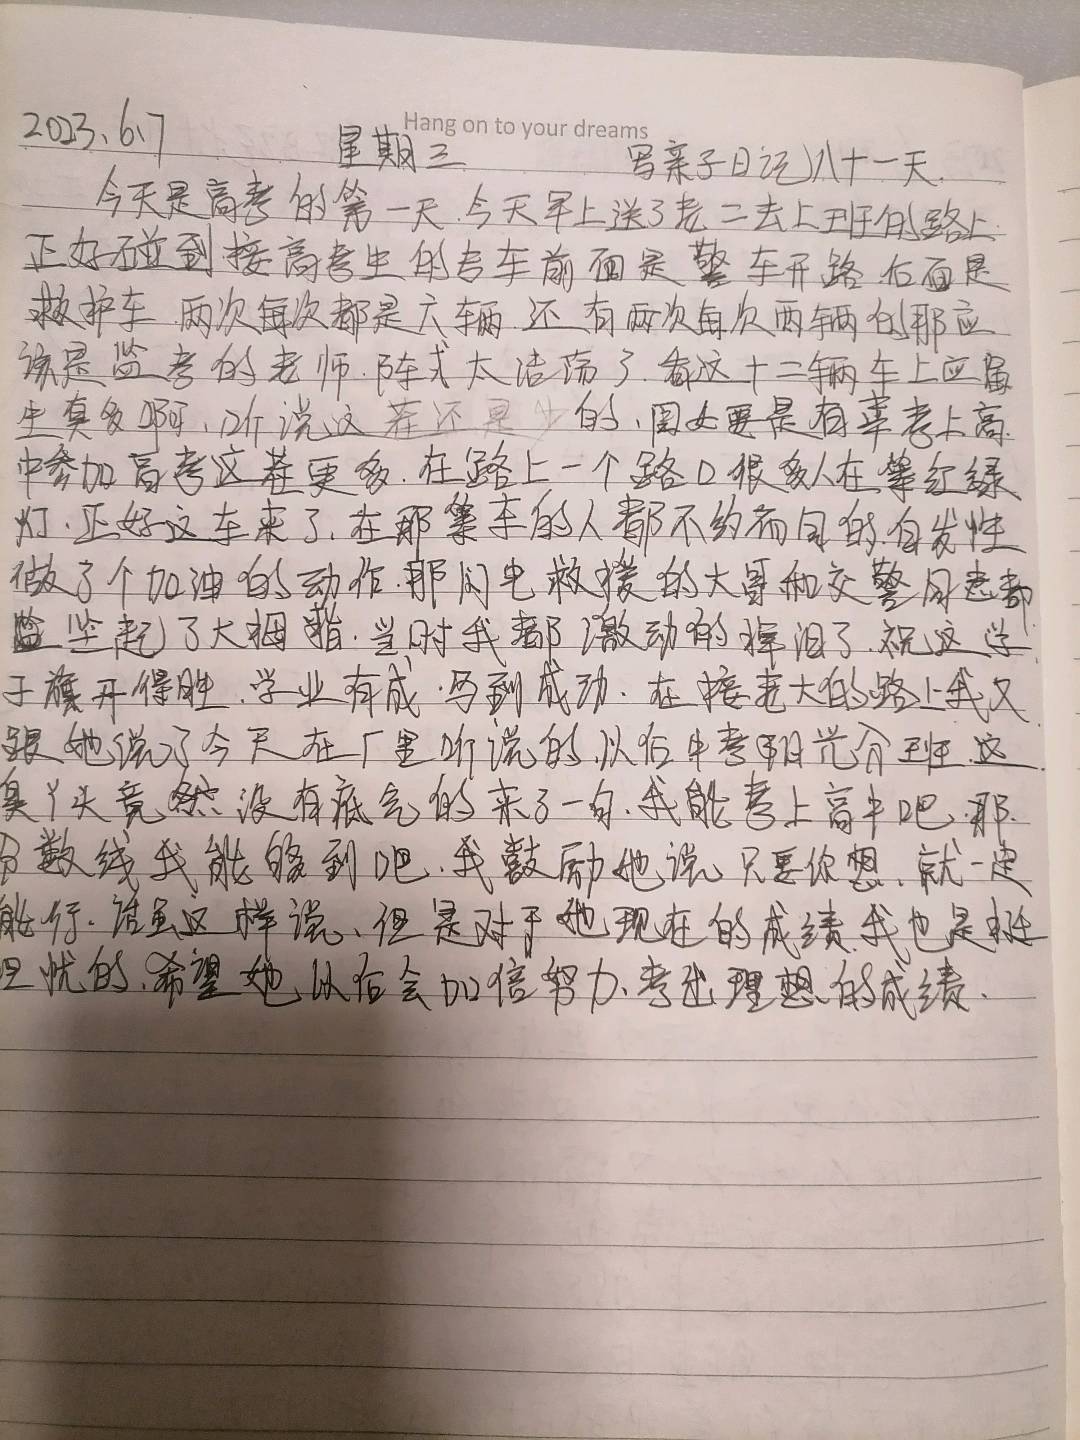 Hang on to your dreams
2023.6.7 星期三 写亲子日记八十一天.
今天是高考的第一天.今天早上送了老二去上班的路上
正好碰到接高考生的专车前面是警车开路.后面是
救护车.两次每次都是六辆.还有两次每次两辆的那应
该是监考的老师.阵式太浩荡了.看这十二辆车上应届
生真多啊、听说这茬还是少的、闺女要是有幸考上高
中参加高考这茬更多.在路上一个路口很多人在等红绿
灯.正好这车来了、在那等车的人都不约而同的.自发性
做了个加油的动作.那闪电救援的大哥和交警同志都
竖起了大拇指.当时我都激动的掉泪了.祝这学
子旗开得胜.学业有成.马到成功.在接老大的路上我又
跟她说了今天在厂里听说的.以后中考阳光分班.这
臭丫头竟然没有底气的来了一句.我能考上高中吧.那
分数线我能够到吧.我鼓励她说、只要你想、就一定
能行.谁虽这样说、但是对于她现在的成绩.我也是挺
担忧的.希望她以后会加倍努力、考出理想的成绩.